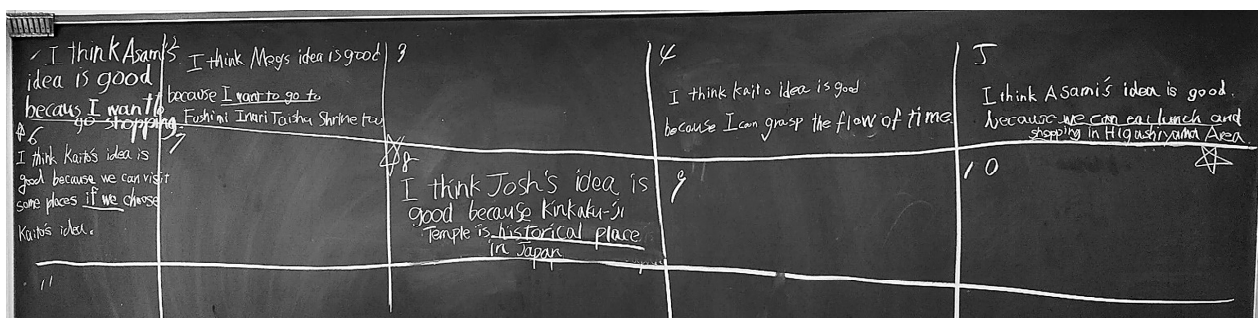 1 I think Asami's
idea is good
becaus I want to
go shopping.
I think Meg's idea is good
because I want to go to
Fushimi Inari Taisha Shrine too
3
4
I think Kaito idea is good
because I can grasp the flow of time
5
I think Asami's idea is good.
because we can eat lunch and
shopping in Higashiyama Area.
6
I think Kaito's idea is
good because we can visit
some places if we choose
Kaito's idea.
7
8
I think Josh's idea is
good because Kinkaku-ji
Temple is historical place
in Japan
9
10
11